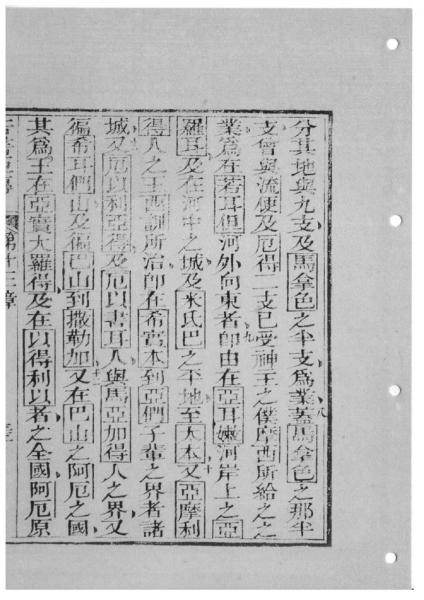 分其地與九支及馬拿色之半支爲業蓋馬拿色之那半
支曾與流便及厄得二支已受神王之僕摩西所給之之
業爲在若耳但河外向東者卽由在亞耳嫩河岸上之亞
羅耳及在河中之城及米氏巴之平地至大本又亞摩利
得人之王西訓所治卽在希實本到亞們子輩之界者諸
城及厄以利亞得及厄以書耳人與馬亞加得人之界又
徧希耳們山及徧巴山到撒勒加又在巴山之阿厄之國
其爲王在亞實大羅得及在以得利以者之全國阿厄原
第十三章